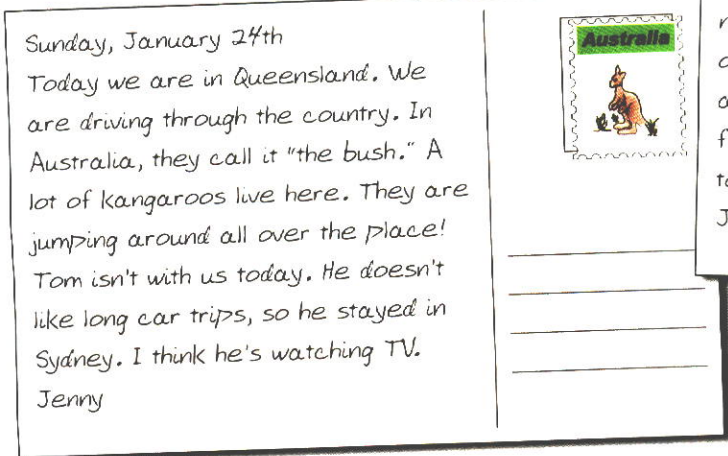 Sunday, January 24th
Today we are in Queensland. We
are driving through the country. In
Australia, they call it "the bush." A
lot of kangaroos live here. They are
jumping around all over the place!
Tom isn't with us today. He doesn't
like long car trips, so he stayed in
Sydney. I think he's watching TV.
Jenny
Australia